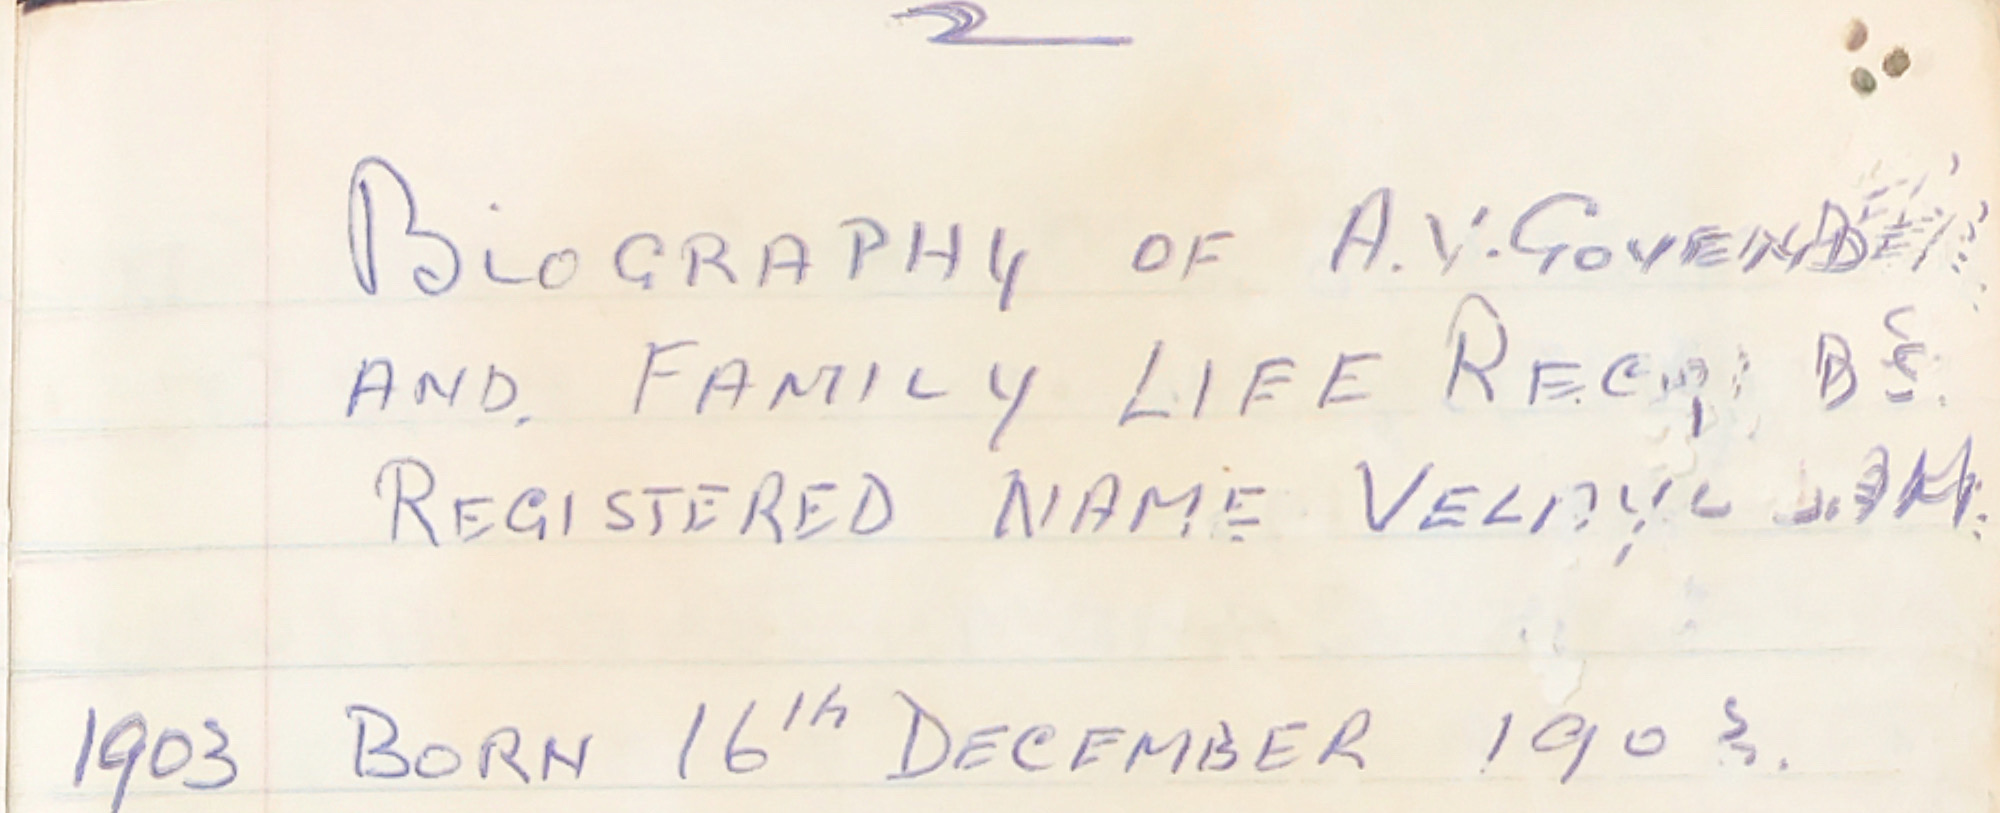 2
BIOGRAPHY OF A.V. GOVENDER
AND FAMILY LIFE
REGISTERED NAME
1903 BORN 16th DECEMBER 1903.